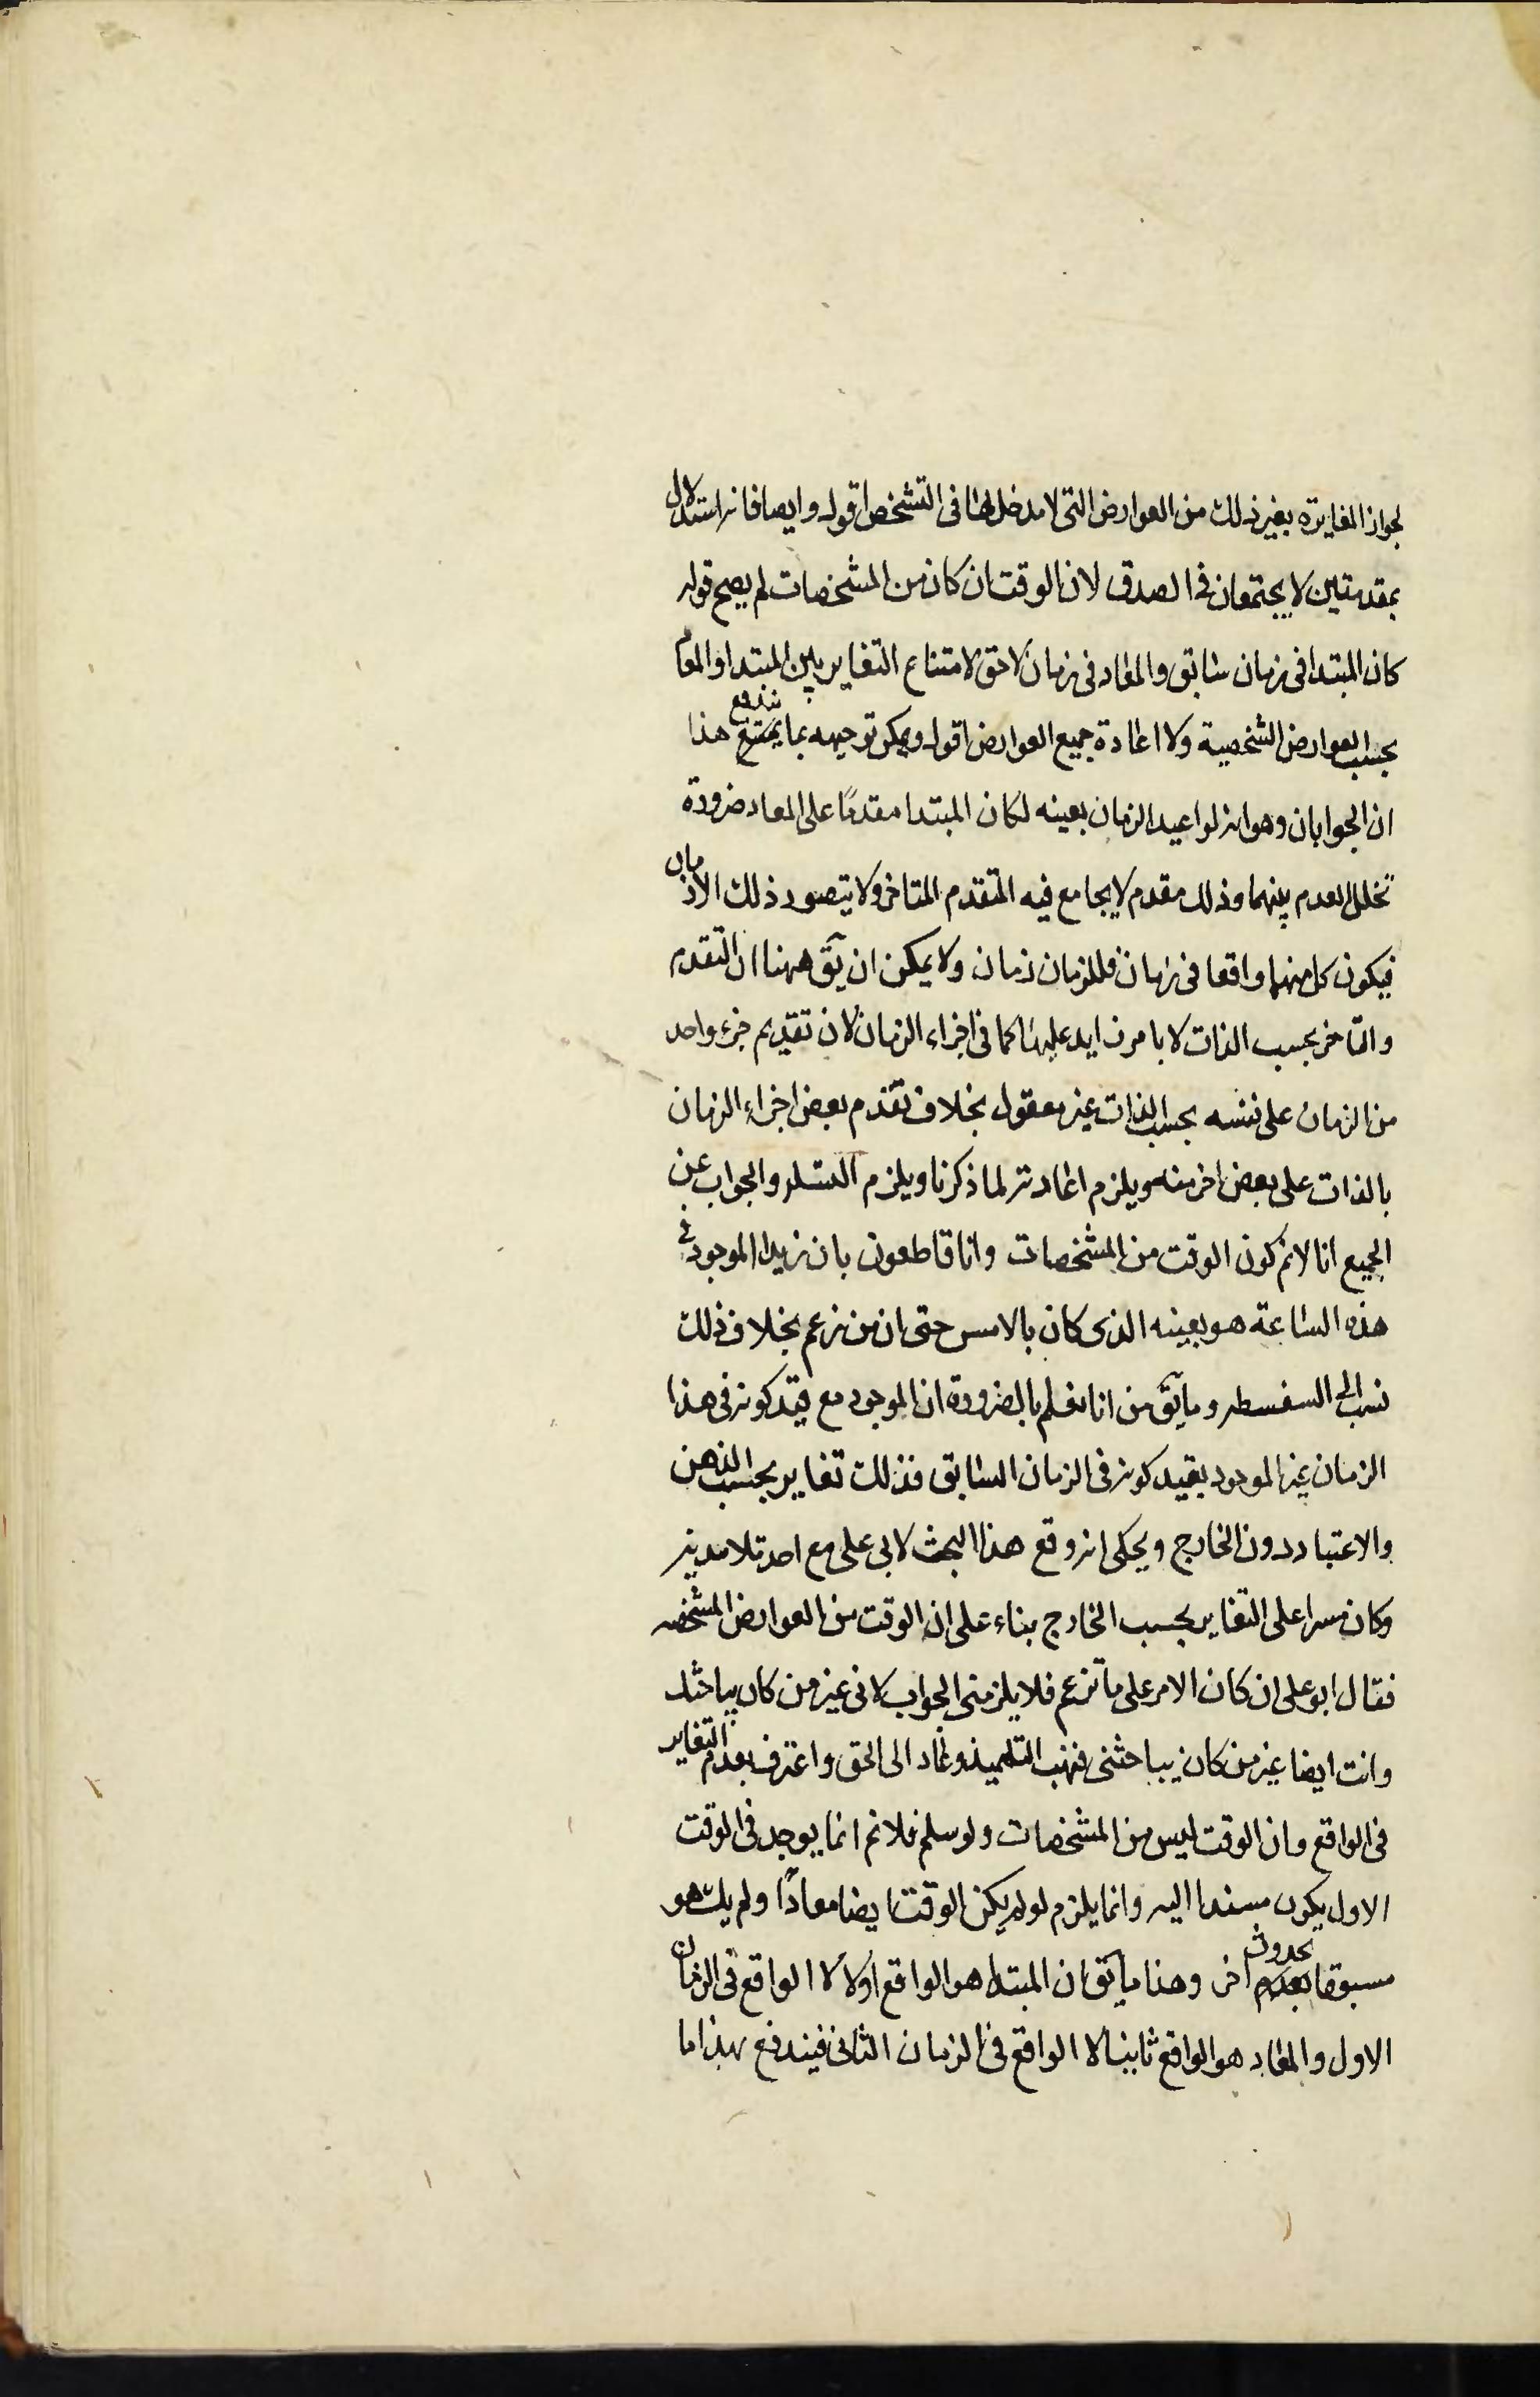 لجواز المغايرة بغير ذلك من العوارض التى لا مدخل لها فى التشخص اقول وايضا فانه استدلال
بمقدمتين لا يجتمعان فى الصدق لان الوقت ان كان من المشخصات لم يصح قوله
كان المبتدا فى زمان سابق والمعاد فى زمان لاحق لامتناع التغاير بين المبتدا والمعاد
بحسب العوارض الشخصية ولا اعادة جميع العوارض اقول ويمكن توجيهه بما يمتنع يندفع هذا
ان الجوابان وهو انه لو اعيد الزمان بعينه لكان المبتدا مقدمًا على المعاد ضرورة
تخلل العدم بينهما وذلك مقدم لا يجامع فيه المتقدم المتاخر ولا يتصور ذلك الا زمان
فيكون كل منهما واقعا فى زمان فللزمان زمان ولا يمكن ان يق ههنا ان التقدم
والتاخر بحسب الذات لا بامر زايد عليها كما فى اجزاء الزمان لان تقديم جزء واحد
من الزمان على نفسه بحسب الذات غير معقول بخلاف تقدم بعض اجزاء الزمان
بالذات على بعض اخر منه ويلزم اعادته لما ذكرنا ويلزم التسلسل والجواب عن
الجميع انا لانم كون الوقت من المشخصات وانا قاطعون بان زيدا الموجود فى
هذه الساعة هو بعينه الذى كان بالامس حتى ان من زعم بخلاف ذلك
نسب الى السفسطه وما يق من انا نعلم بالضرورة ان الموجود مع قيد كونه فى هذا
الزمان غير الموجود بقيد كونه فى الزمان السابق فذلك تغاير بحسب الذهن
والاعتبار دون الخارج ويحكى انه وقع هذا البحث لابى على مع احد تلامذته
وكان مسرا على التغاير بحسب الخارج بناء على ان الوقت من العوارض المشخصه
فقال ابو على ان كان الامر على ما تزعم فلا يلزمنى الجواب لانى غير من كان يباحثك
وانت ايضا غير من كان يباحثنى فبهت التلميذ وعاد الى الحق واعترف بعدم التغاير
فى الواقع وان الوقت ليس من المشخصات ولو سلم فلانم انما يوجد فى الوقت
الاول يكون مبتدا اليه وانما يلزم لو لم يكن الوقت ايضا معادًا ولم يك هو
مسبوقا بعدم بحدوث اخر وهذا ما يق ان المبتدا هو الواقع اولا لا الواقع فى الزمان
الاول والمعاد هو الواقع ثانيا لا الواقع فى الزمان الثانى فيندفع بهذا ما